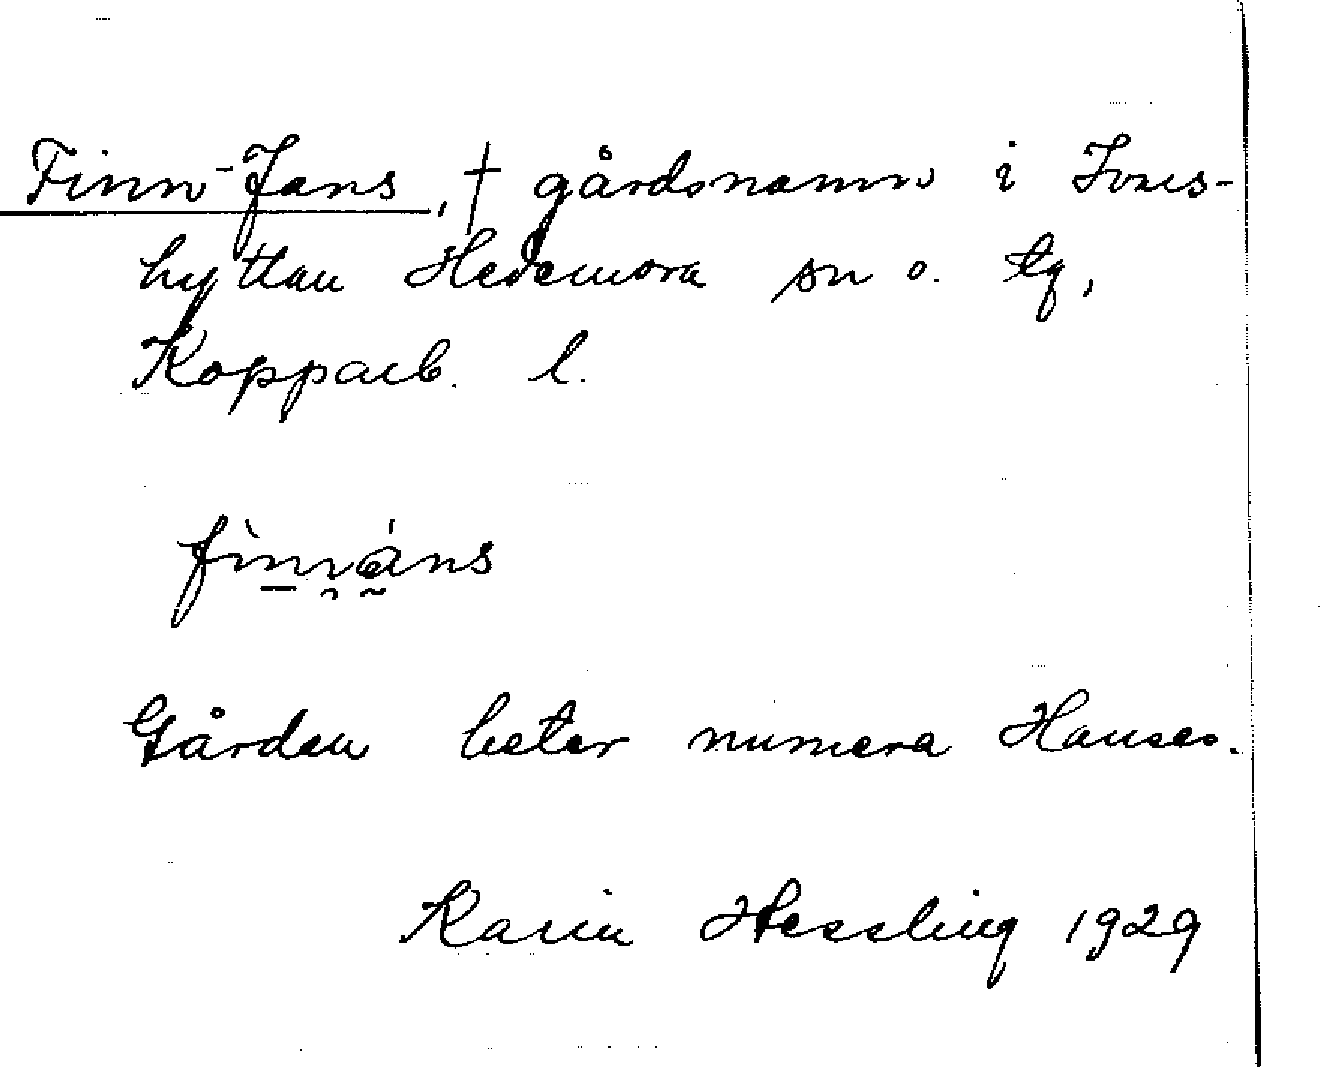 Finn-Jans, † gårdsnamn i Ivars-
hyttan Hedemora sn o. tg,
Kopparb. l.
Gården heter numera Hanses.
Karin Hessling 1929